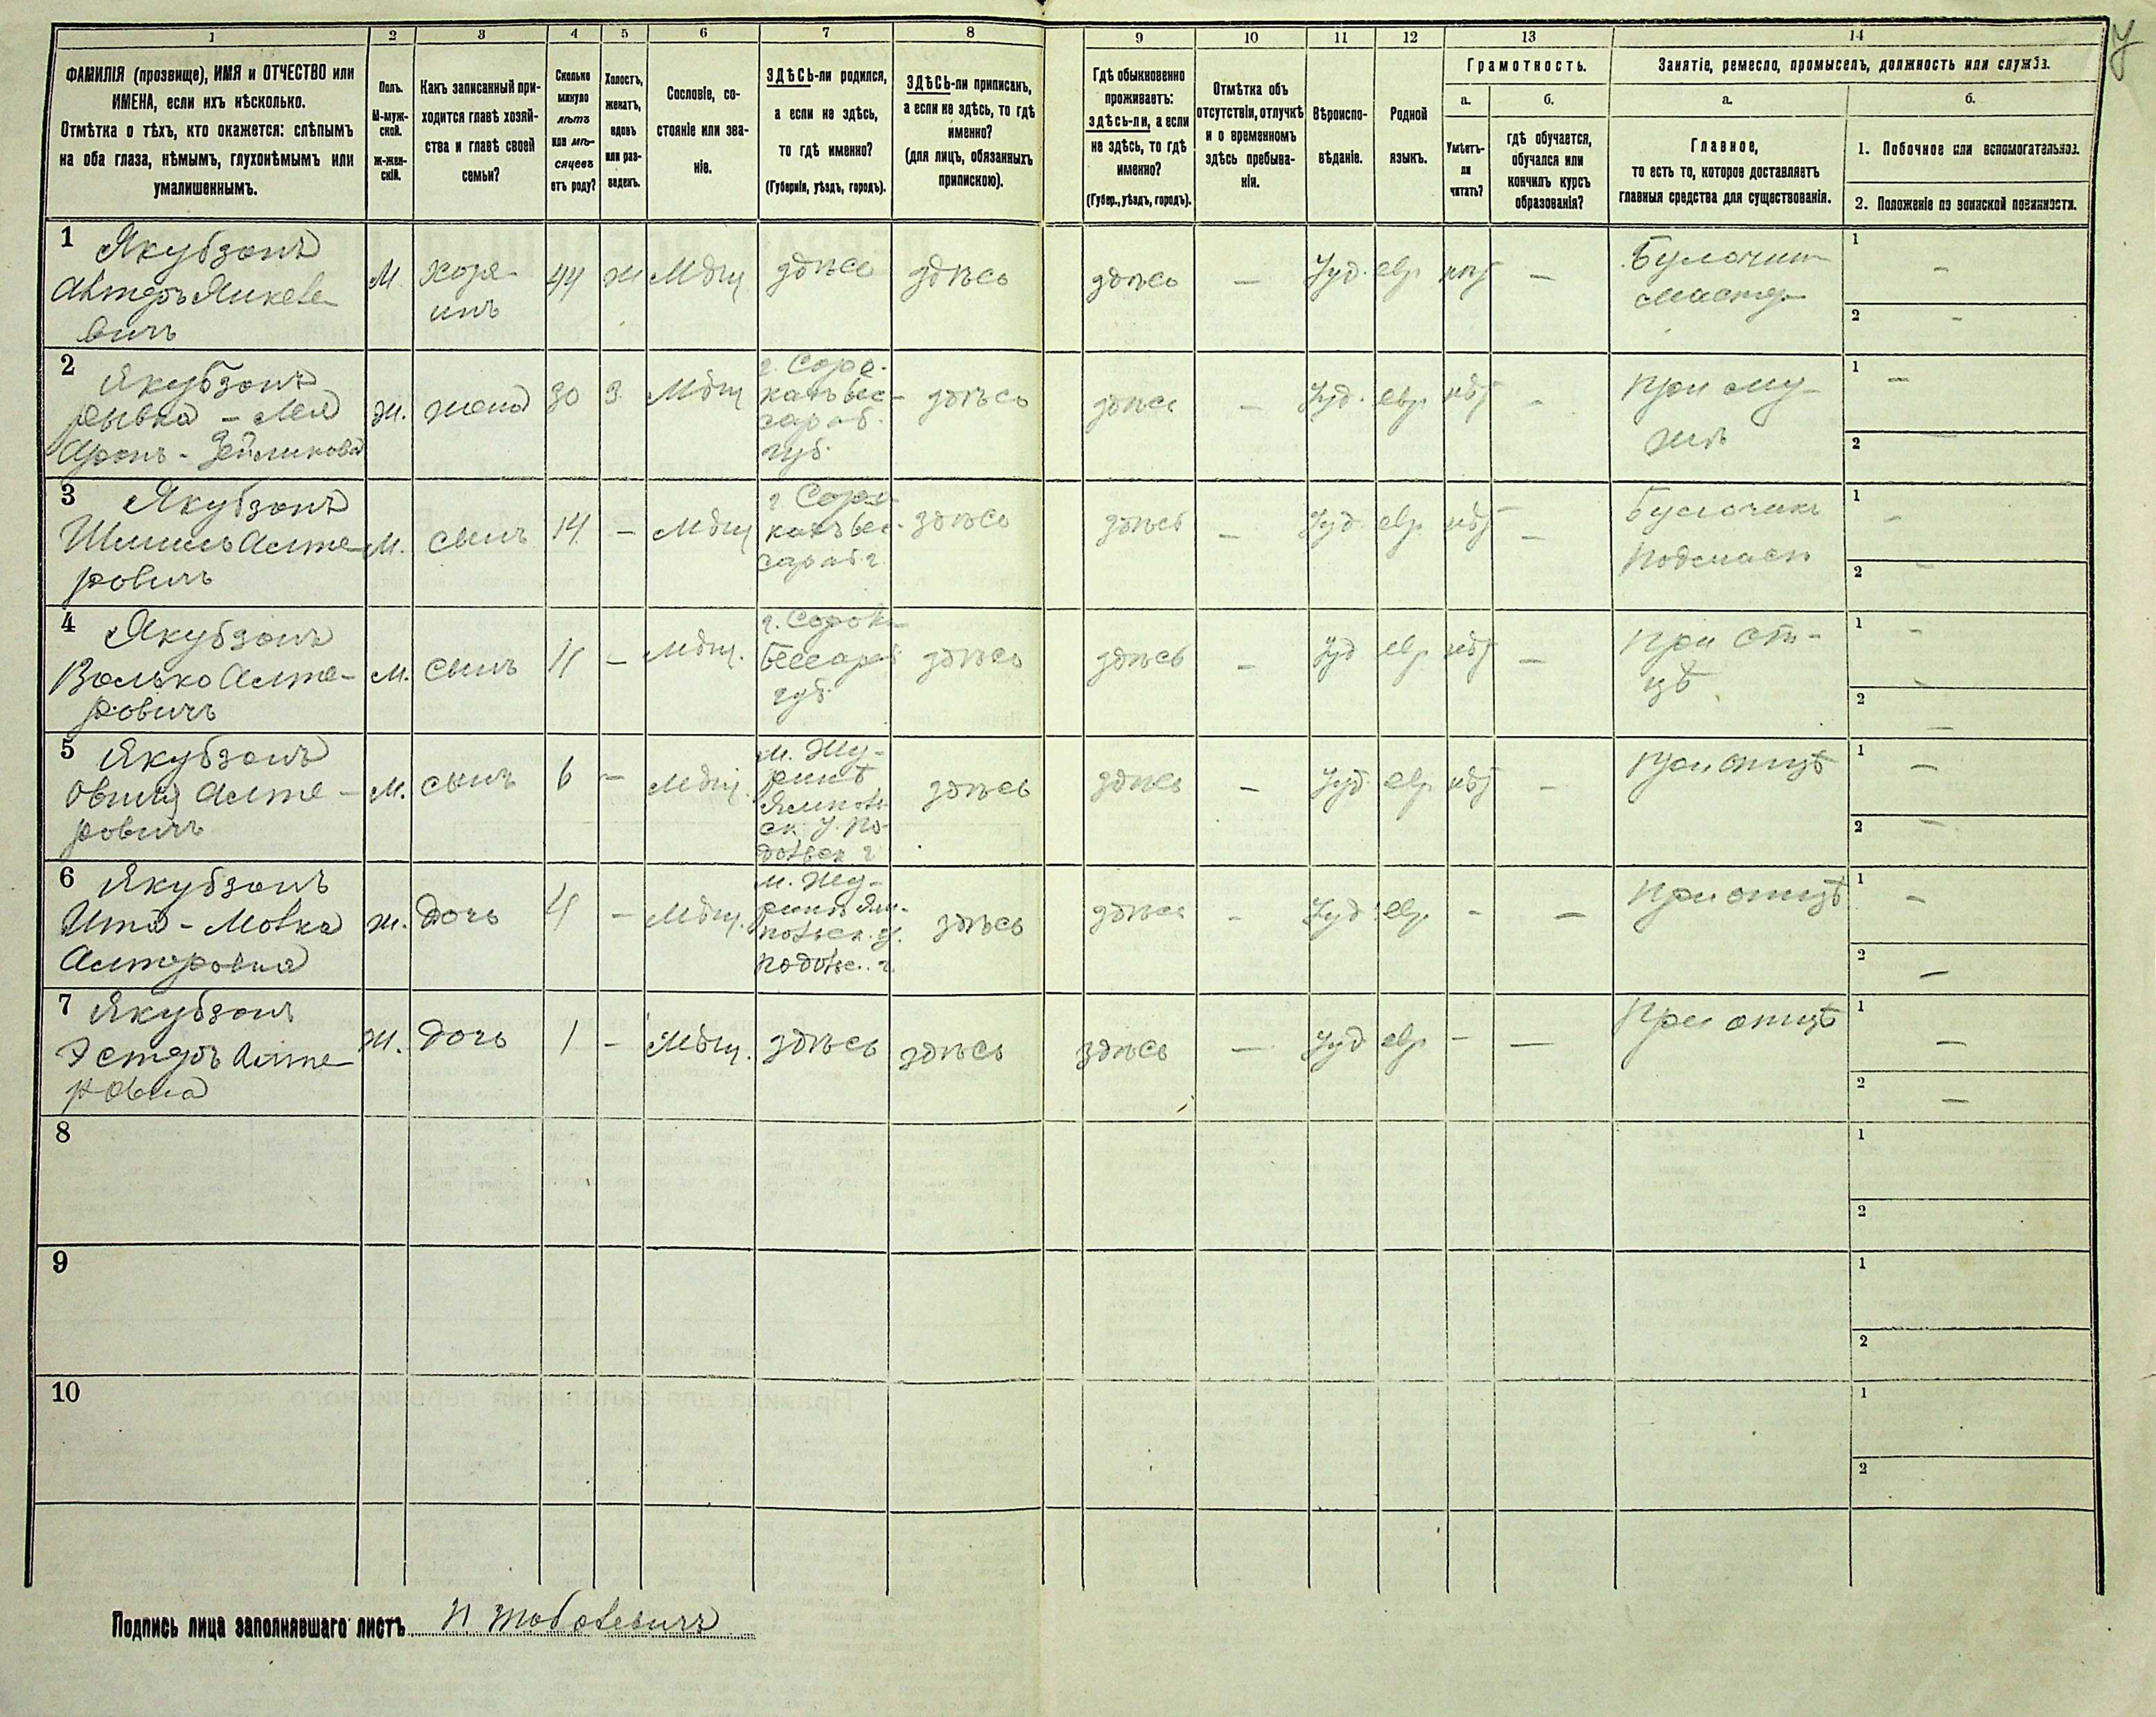 1
2
3
4
5
6
7
8
9
10
11
12
13
14
ФАМИЛІЯ (прозвище), ИМЯ и ОТЧЕСТВО или
ИМЕНА, если ихъ нѣсколько.
Отмѣтка о тѣхъ, кто окажется: слѣпымъ
на оба глаза, нѣмымъ, глухонѣмымъ или
умалишеннымъ.
Полъ.
М-муж-
ской.
Ж-жен-
скій.
Какъ записанный при-
ходится главѣ хозяй-
ства и главѣ своей
семьи?
Сколько
минуло
лѣтъ
или мѣ-
сяцевъ
отъ роду?
Холостъ,
женатъ,
вдовъ
или раз-
веденъ.
Сословіе, со-
стояніе или зва-
ніе.
ЗДѢСЬ-ли родился,
а если не здѣсь,
то гдѣ именно?
(Губернія, уѣздъ, городъ).
ЗДѢСЬ-ли приписанъ,
а если не здѣсь, то гдѣ
именно?
(для лицъ, обязанныхъ
припискою).
Гдѣ обыкновенно
проживаетъ:
здѣсь-ли, а если
не здѣсь, то гдѣ
именно?
(Губер., уѣздъ, городъ).
Отмѣтка объ
отсутствіи, отлучкѣ
и о временномъ
здѣсь пребыва-
ніи.
Вѣроиспо-
вѣданіе.
Родной
языкъ.
Грамотность.
а.
Умѣетъ-
ли
читать?
б.
гдѣ обучается,
обучался или
кончилъ курсъ
образованія?
Занятіе, ремесло, промыселъ, должность или служба.
а.
Главное,
то есть то, которое доставляетъ
главныя средства для существованія.
б.
1. Побочное или вспомогательное.
2. Положеніе по воинской повинности.
1 Якубзонъ
Янкеле-
вичъ
М
хозя-
инъ
44
Ж
Мѣщ
здѣсь
здѣсь
здѣсь
—
Іуд.
евр.
—
Булочник
мастер
1 —
2 —
2 Якубзонъ
Рывка - Лея
Аронъ-Зейликова
Ж.
жена
30
З
Мѣщ
г. Соро-
кахъ Бес-
сараб.
губ.
здѣсь
здѣсь
—
Іуд.
евр.
—
При му-
жѣ
1 —
2 —
3 Якубзонъ
Шмиль Альте-
ровичъ
М.
сынъ
14
—
Мѣщ
г. Соро-
кахъ Бес-
сараб г.
здѣсь
здѣсь
—
Іуд
евр.
—
Булочник
подмаст
1 —
2 —
4 Якубзонъ
Волько Альте-
ровичъ
М.
сынъ
11
—
Мѣщ.
г. Сороки
Бессараб
губ.
здѣсь
здѣсь
—
Іуд
евр.
—
При от-
цѣ
1 —
2 —
5 Якубзонъ
Овшия Альте-
ровичъ
М.
сынъ
6
—
Мѣщ.
м. Жу-
ринѣ
Ямполь-
ск. у. По-
дольск г
здѣсь
здѣсь
—
Іуд.
евр.
—
При отцѣ
1 —
2 —
6 Якубзонъ
Ита - Малка
Альтеровна
Ж.
Дочь
4
—
Мѣщ.
м. Жу-
ринѣ Ям-
польск. у.
Подольс. г.
здѣсь
здѣсь
—
Іуд
евр.
—
—
При отцѣ
1 —
2 —
7 Якубзонъ
Эстеръ Альте-
ровна
Ж.
Дочь
1
—
Мѣщ.
здѣсь
здѣсь
здѣсь
—
Іуд
евр.
—
—
При отцѣ
1 —
2 —
8
1
2
9
1
2
10
1
2
Подпись лица заполнявшаго листъ